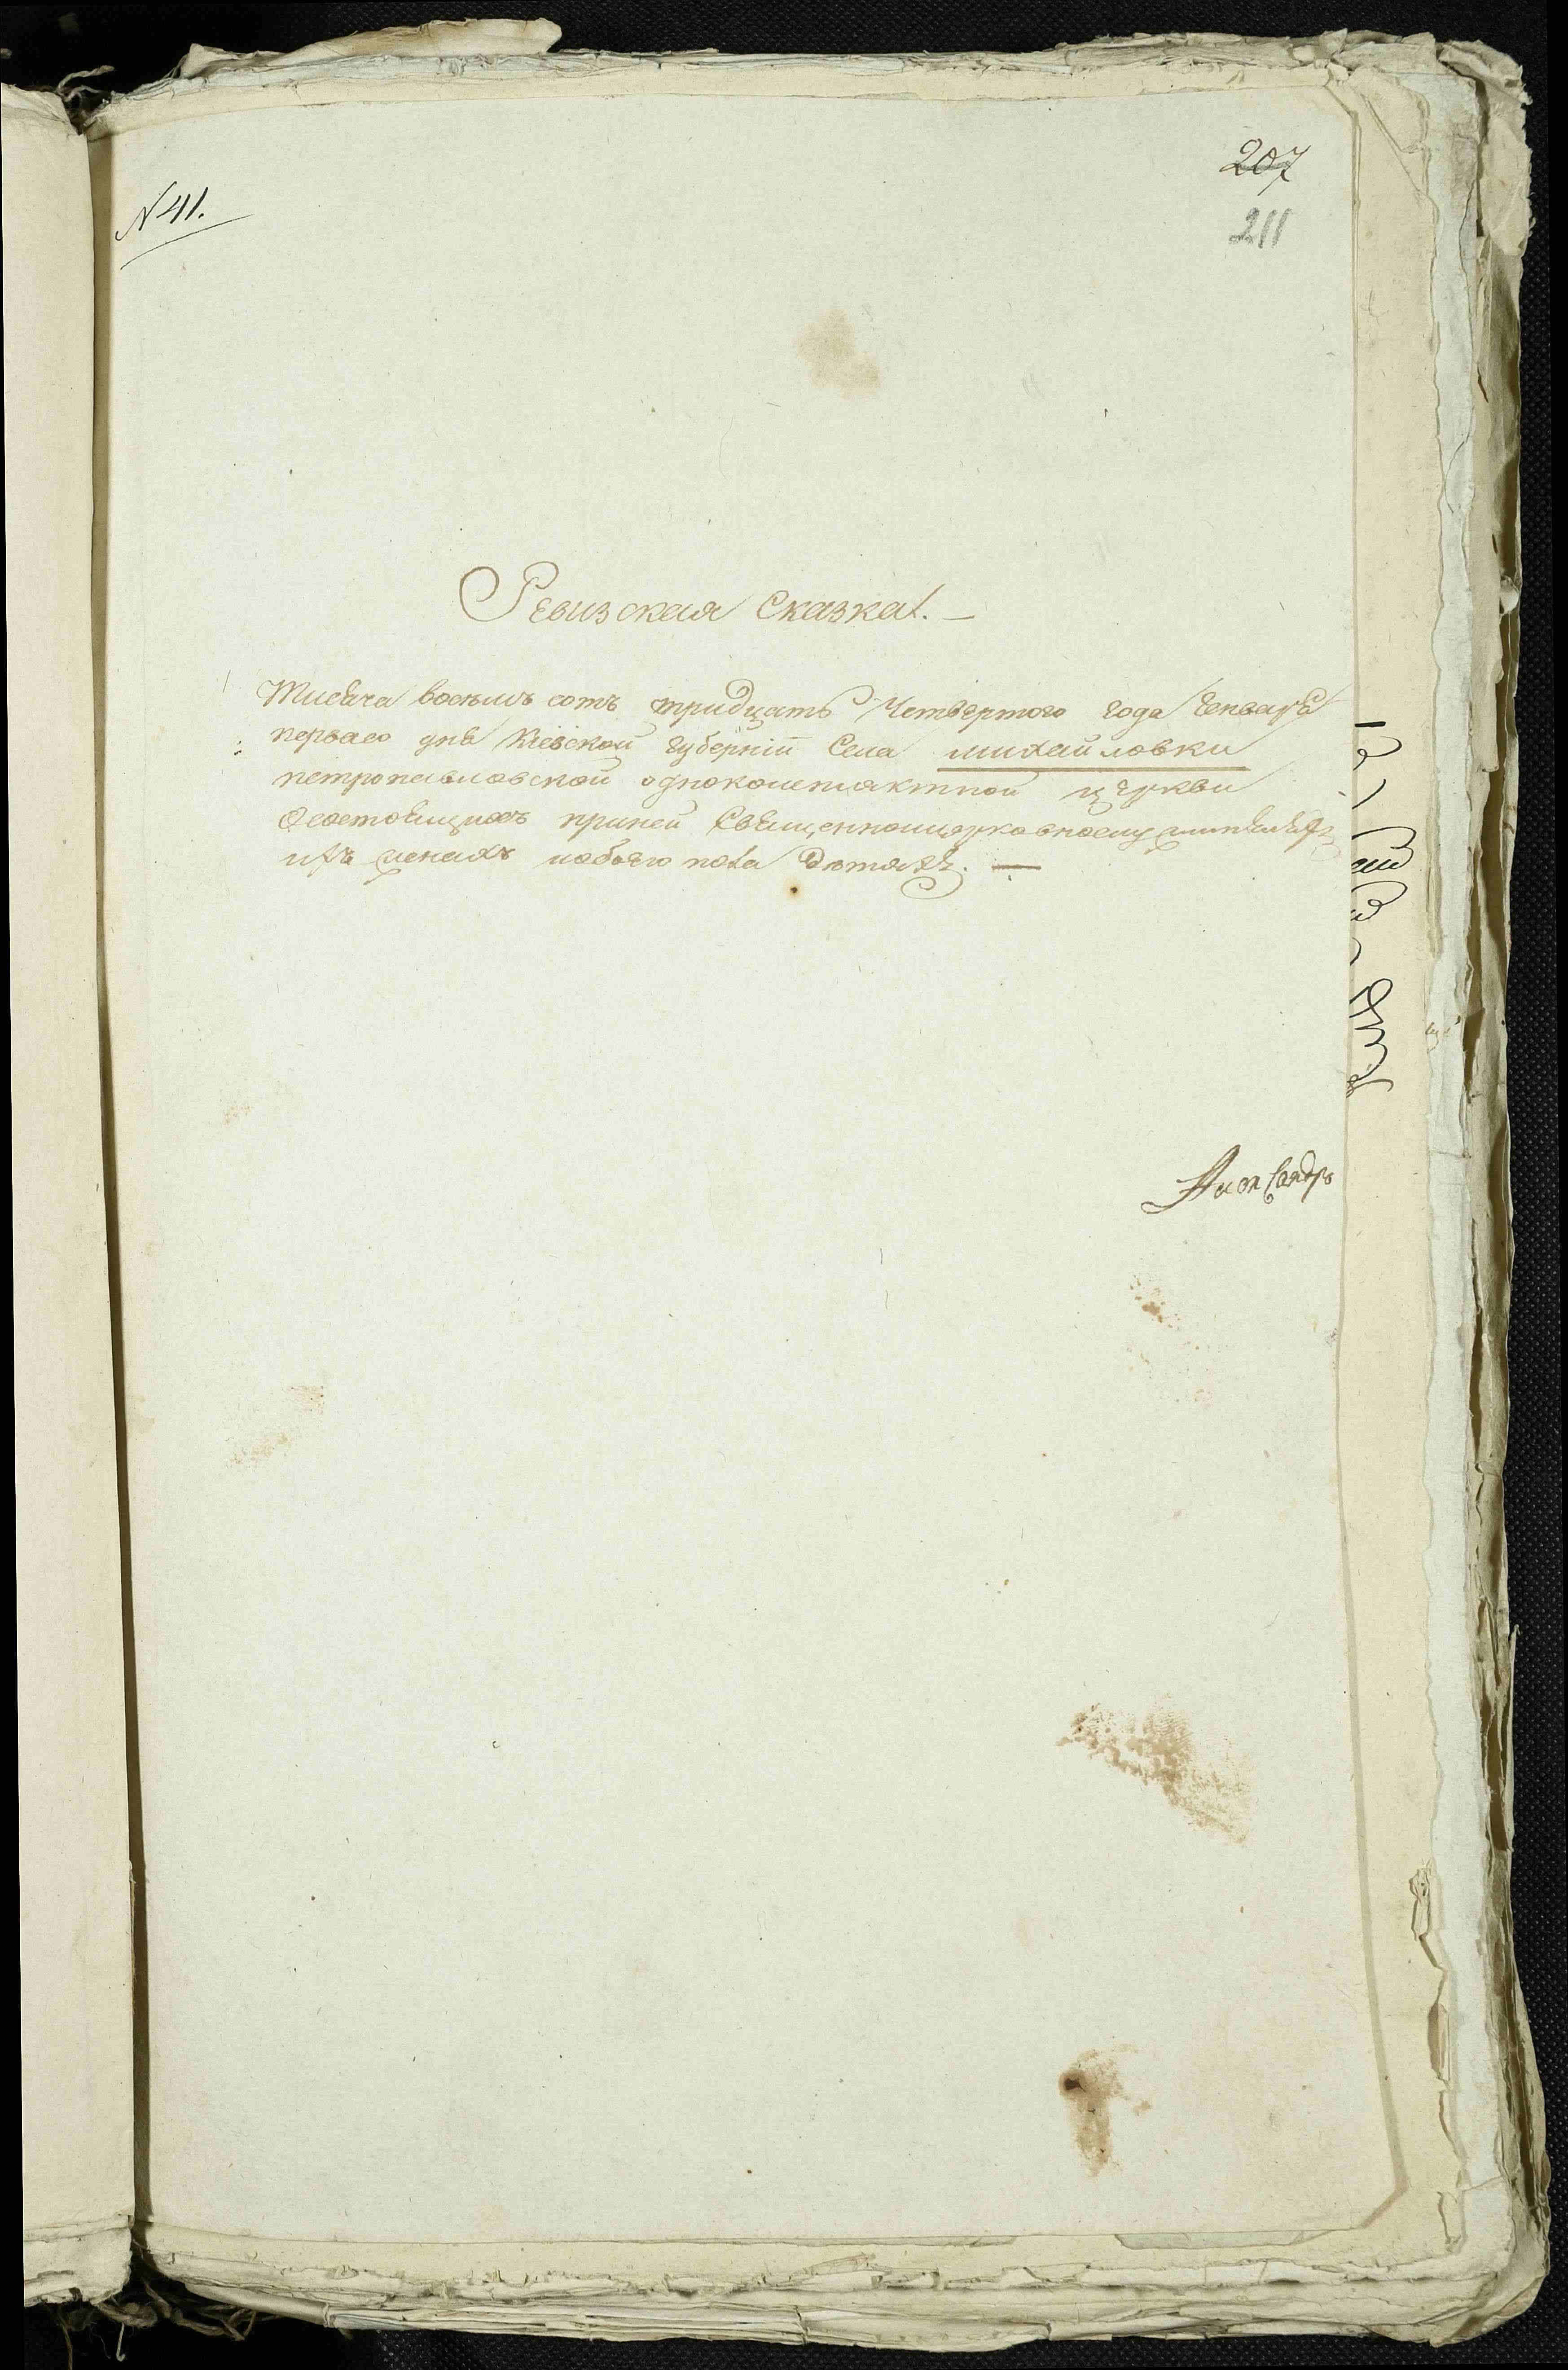 N 41.
207
211
Ревизская Сказка. —
Тисяча восемь сотъ тридцать Четвертого года Генваря
первого дня Кіевской губерніи Села михайловки
петропавловской однокомплектной церкви
Осостоящихъ приней Священноицерковнослужителяхъ
ихъ женахъ иобоего пола Дѣтяхъ. —
Александръ